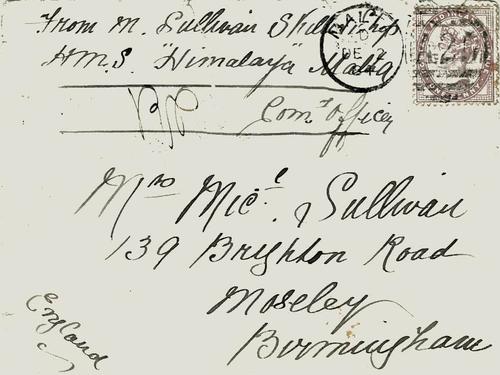 From M. Sullivan Ship
HMS "Himalaya" Malta
MALTA
DE 2
Comg Officer
Mrs Micl Sullivan
139 Brighton Road
Moseley
Birmingham
England